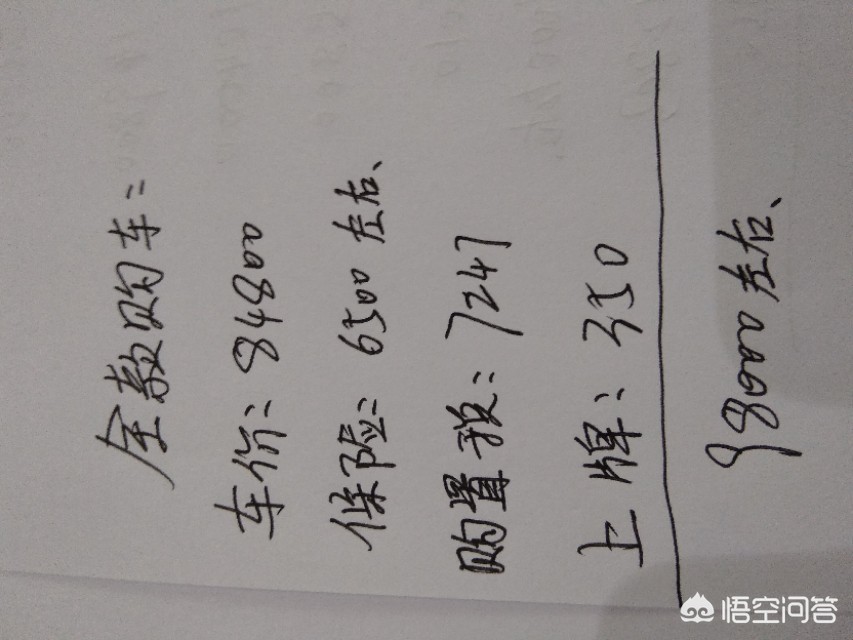 全款购车:
车价: 84800
保险: 6500左右、
购置税: 7247
上牌: 350
98000左右、
悟空问答